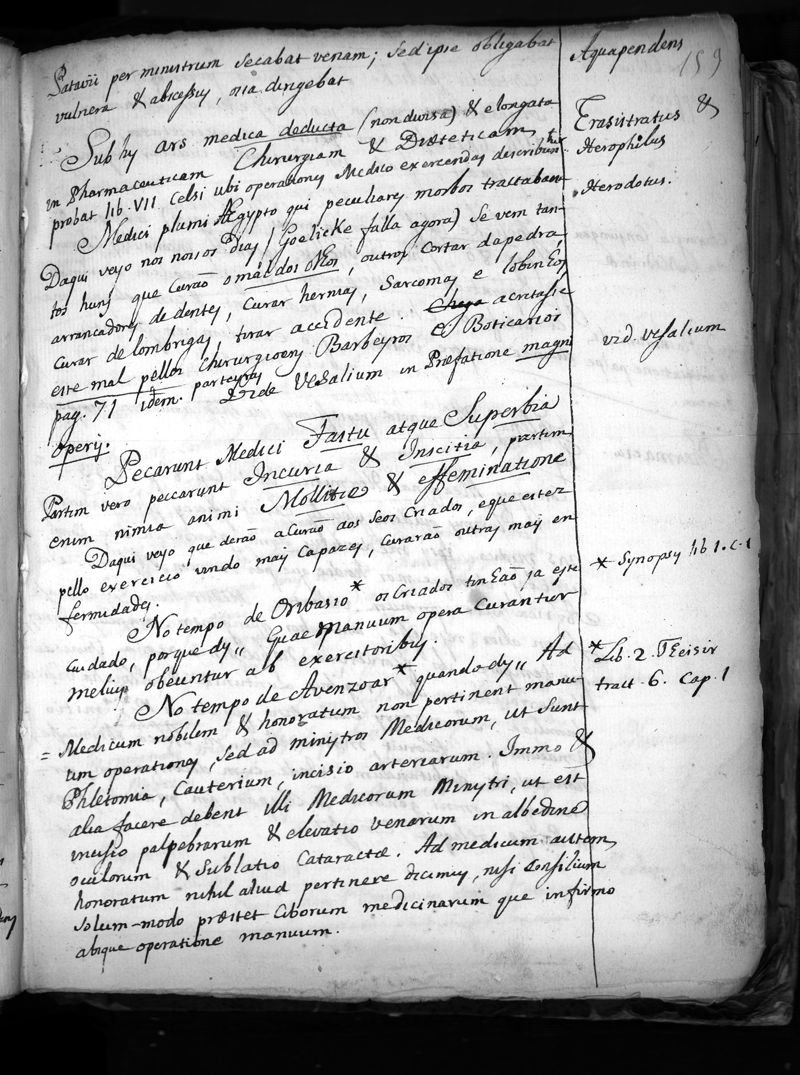 Patavii per ministrum secabat venam; sed ipse obligabat
Aquapendens
159
vulnera & abscessus, ossa dirigebat
Sub hys ars medica deducta (non divisa) & elongata
Erasistratus &
in Pharmaceuticam Chirurgiam & Diæteticam, ut
Herophilus
probat lib. VII Celsi ubi operationes Medico exercendas describuntur.
Medici plurimi Ægypto qui peculiares morbos tractabant
Herodotus.
Daqui veyo nos nossos Dias (Goelicke falla agora) Se vem tan-
tos huns que Curaõ o mal dos olhos, outros Cortar da pedra,
arrancadores de dentes, Curar hernias, Sarcomas e lobinhos,
Curar de lombrigas, tirar accidente. Chega acritasse
este mal pellos Chirurgioens Barbeyros e Boticarios
vid. Vesalium
pag. 71 idem. parteyras Vide Vesalium in Præfatione magni
operis.
Pecarunt Medici Fastu atque Superbia
Partim vero peccarunt Incuria & Inscitia, partim
enim nimia animi Mollitie & effeminatione
Daqui veyo que deraõ a Curaõ aos Seos Criados, e que estes
pello exercicio vindo mais Capazes, Curaraõ outras mais en
* Synopsis lib 1. C. 1
fermidades.
No tempo de Oribasio* os Criados tinhaõ ja este
Cuidado, porque dis „ Quae manuum opera Curantur
melius obeuntur ab exercitoribus.
No tempo de Avenzoar* quando dis „ Ad
* Lib. 2. Theisir
= Medicum nobilem & honoratum non pertinent manu-
tract. 6. Cap. 1
um operationes, sed ad ministros Medicorum, ut Sunt
Phletomia, Cauterium, incisio arteriarum. Immo &
alia facere debent illi Medicorum Ministri, ut est
incisio palpebrarum & elevatio venarum in albedine
oculorum & Sublatio Cataractæ. Ad medicum autem
honoratum nihil aliud pertinere dicimus, nisi Consilium
Solum-modo præstet Ciborum medicinarum que infirmo
absque operatione manuum.